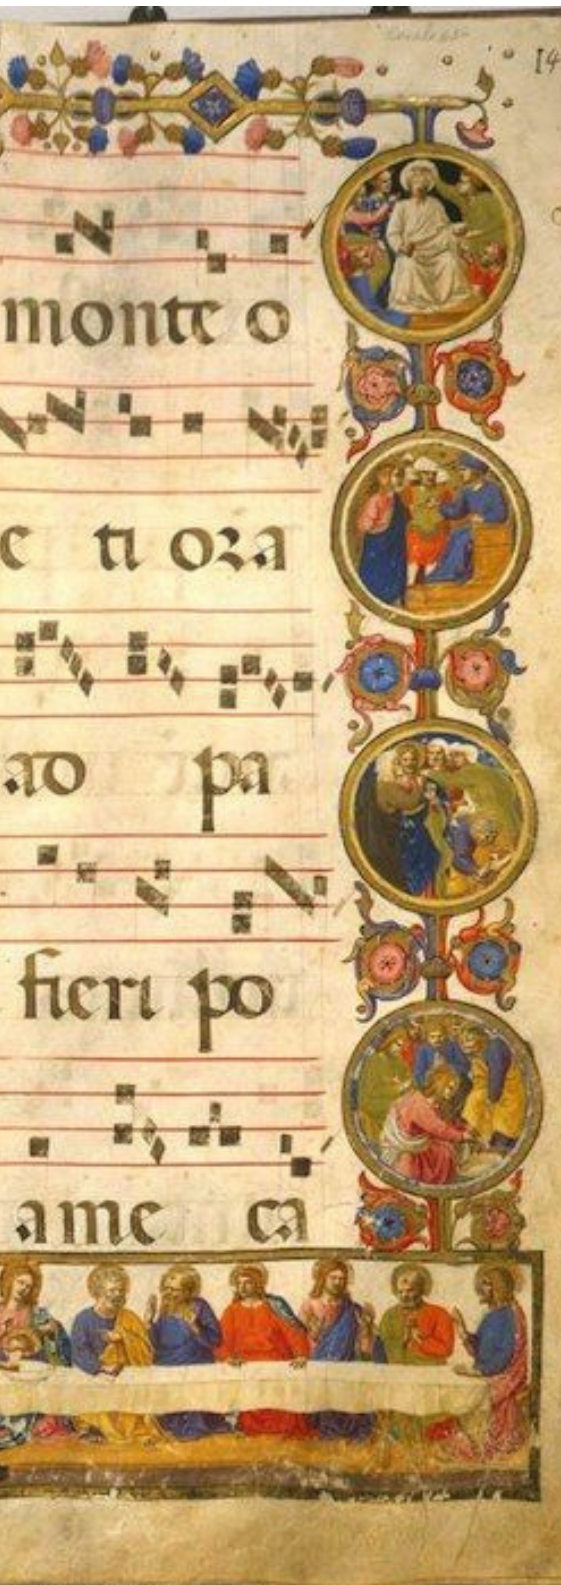 [4
monte o
e ti ora
ad pa
fieri po
a me ca